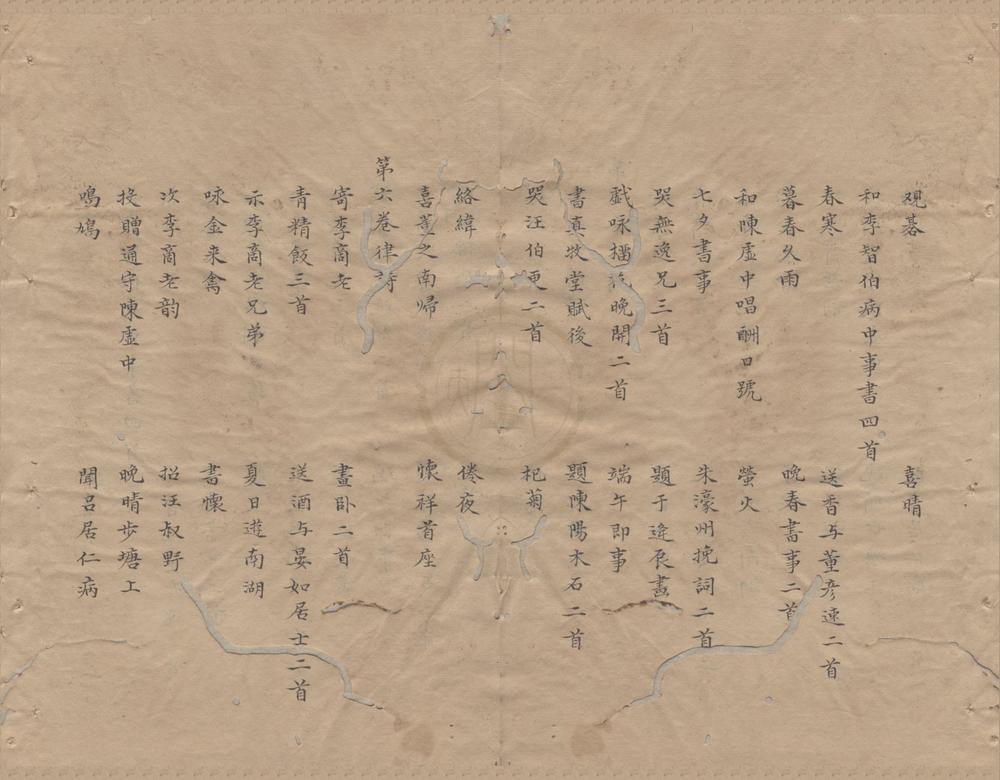 覌碁 喜晴
和李智伯病中事書四首
春寒 送香与董彦速二首
暮春久雨 晚春書事二首
和陳虛中唱酬口號 螢火
七夕書事 朱濠州挽詞二首
哭無逸兄三首 題于逄辰畫
戯咏晚開二首 端午即事
書真牧堂賦後 題陳陽木石二首
哭汪伯更二首 杞菊
絡緯 倦夜
喜董之南帰 懷祥首座
第六卷律詩
寄李商老 晝卧二首
青精飯三首 送酒与晏如居士二首
示李商老兄弟 夏日遊南湖
咏金来禽 書懷
次李商老韵 招汪叔野
投贈通守陳虛中 晚晴步塘上
鳴鳩 聞呂居仁病